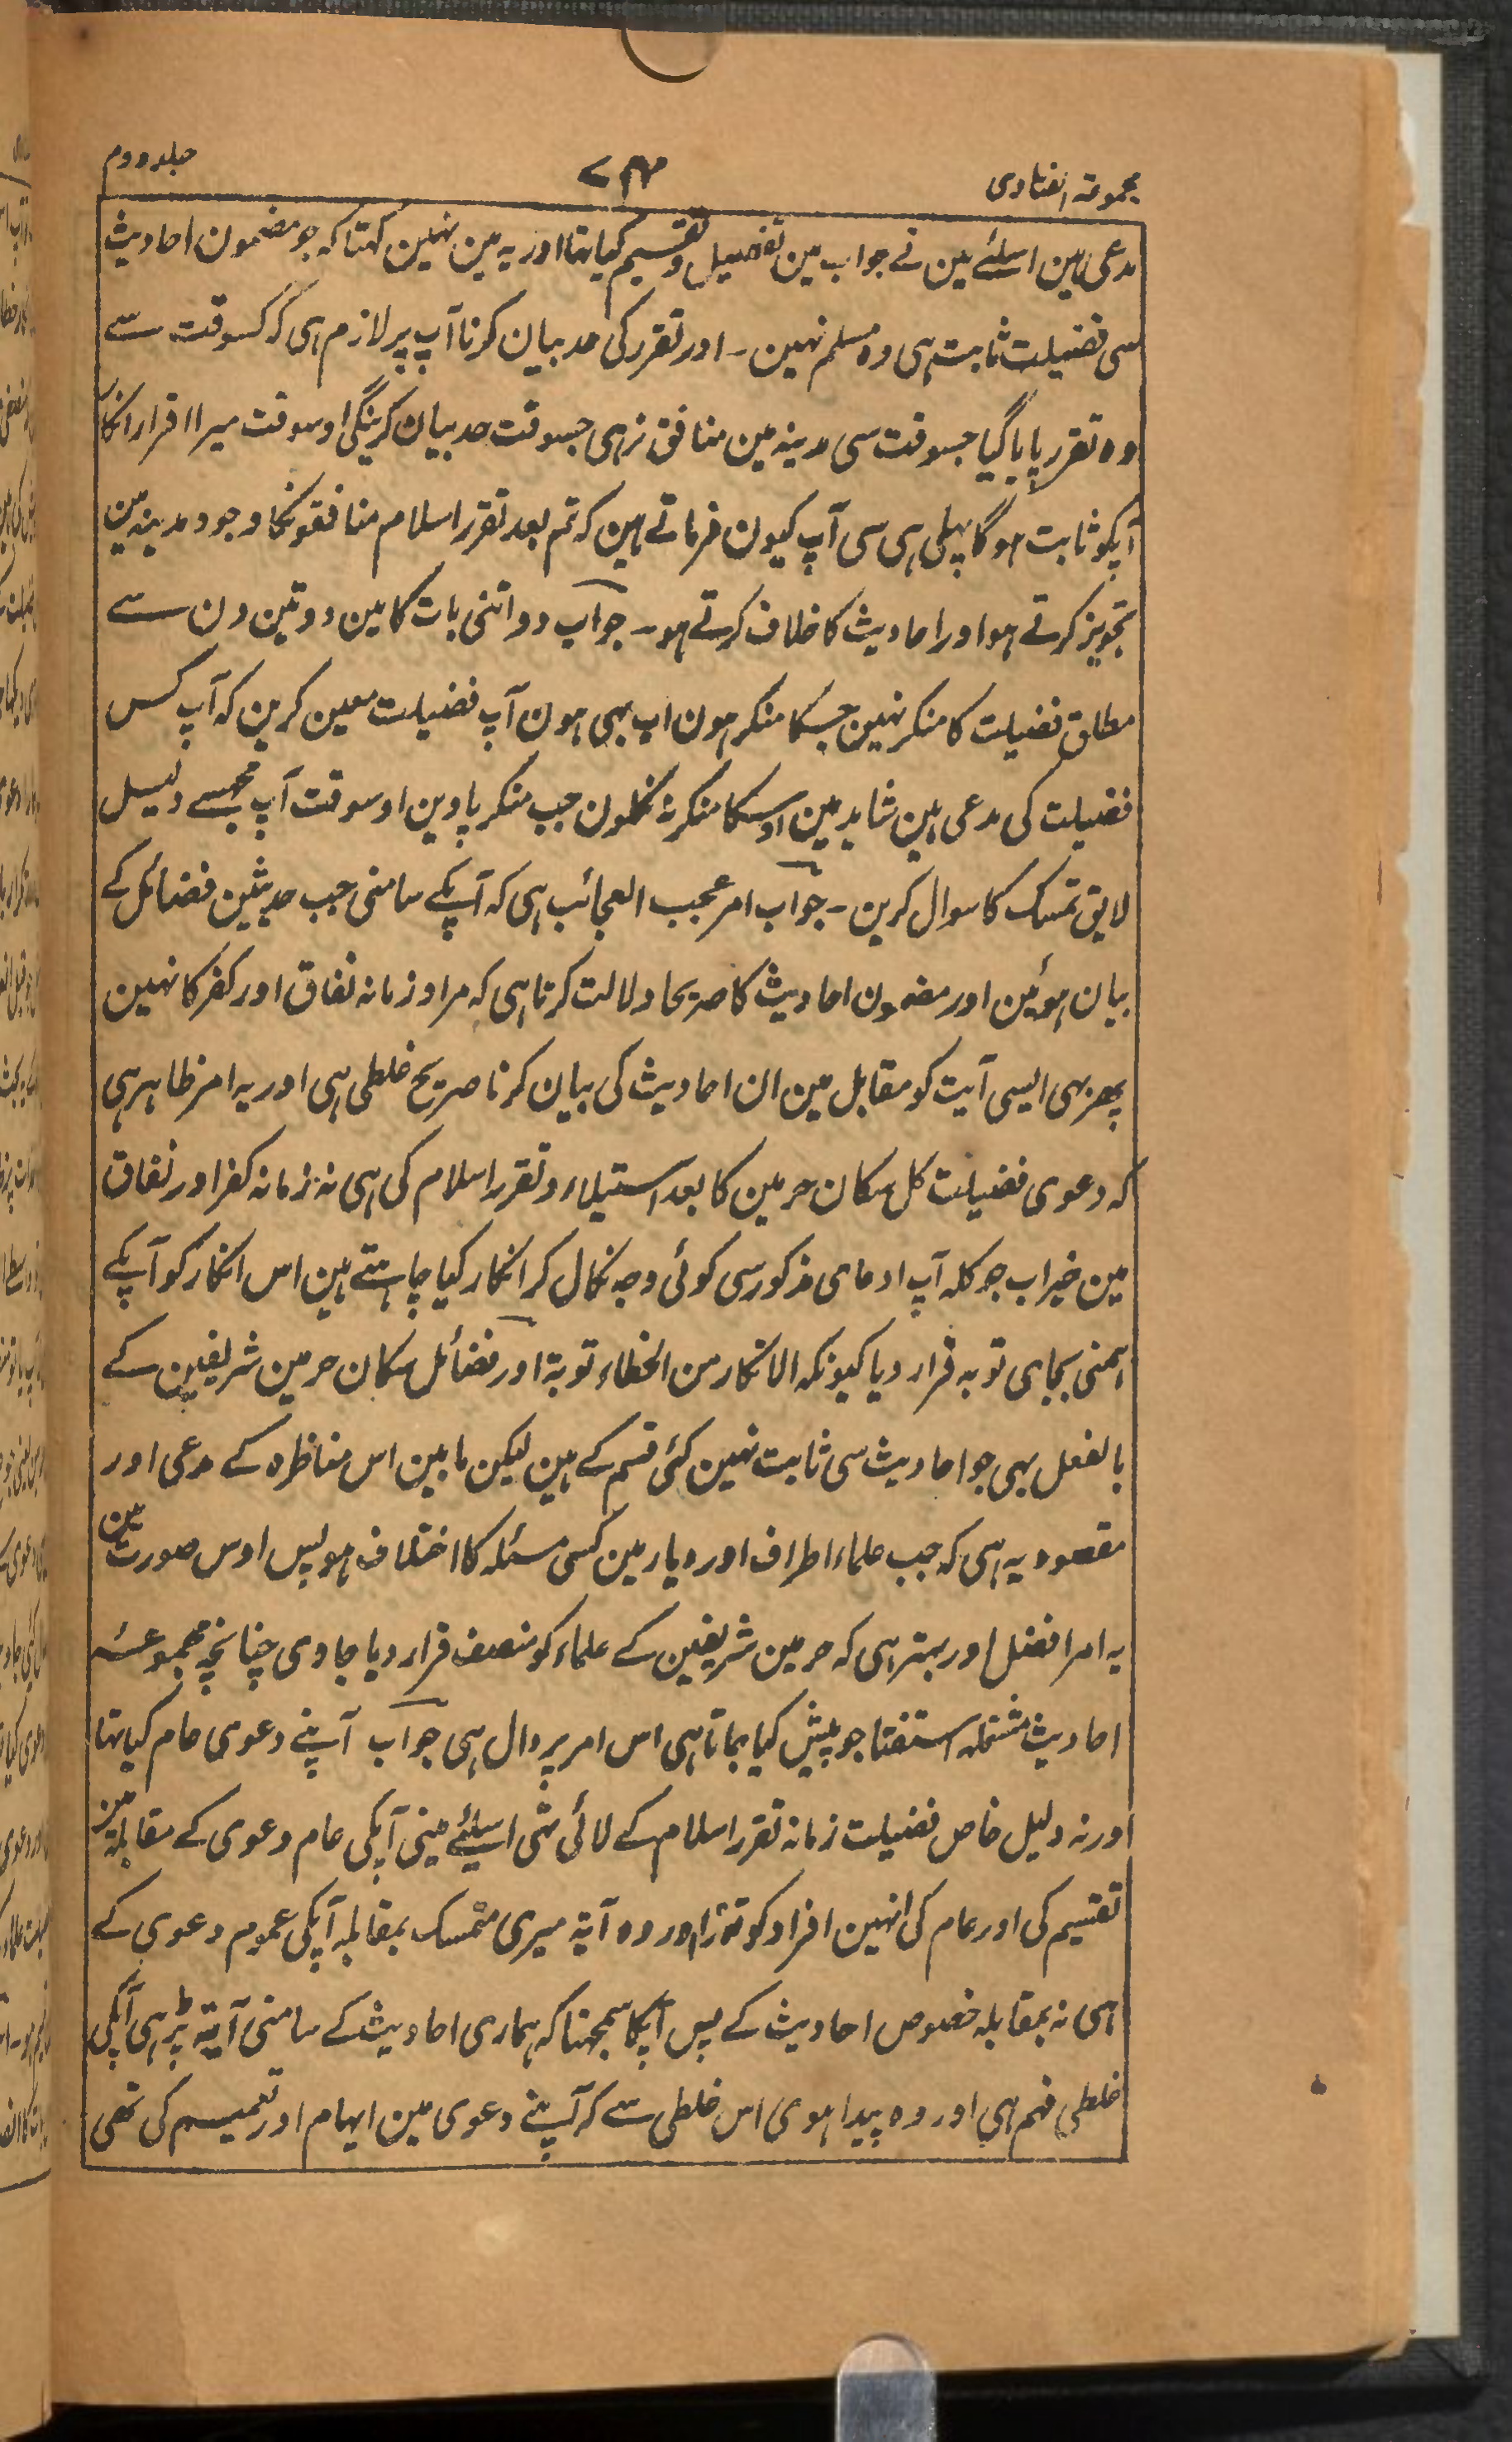 مجموعۃ الفتاوی
۷۴۴
جلد دوم
مدعی ہین اسلئے مین نے جواب مین تفصیل وتقسیم کیا تہا اور یہ مین نہین کہتا کہ جو مضمون احادیث
سی فضیلت ثابت ہی وہ مسلم نہین ۔ اور تقرر کی حد بیان کرنا آپ پر لازم ہی کہ کسوقت سے
وہ تقرر پایا گیا جسوقت سی مدینہ مین منافق نرہی جسوقت حد بیان کرینگی اوسوقت میرا اقرار انکار
آپکو ثابت ہوگا پہلی ہی سی آپ کیون فرماتے ہین کہ تم بعد تقرر اسلام منافقونکا وجود مدینہ مین
تجویز کرتے ہو اور احادیث کا خلاف کرتے ہو ۔ جواب دو اتنی بات کا مین دو تین دن سے
مطلق فضیلت کا منکر نہین جسکا منکر ہون اب بہی ہون آپ فضیلت معین کرین کہ آپ کس
فضیلت کی مدعی ہین شاید مین اوسکا منکر نہ نکلون جب منکر پاوین اوسوقت آپ مجہسے دلیل
لایق تمسک کا سوال کرین ۔ جواب امر عجب العجائب ہی کہ آپکے سامنی جب حدیثین فضائل کے
بیان ہوئین اور مضمون احادیث کا صریحا دلالت کرتا ہی کہ مراد زمانہ نفاق اور کفر کا نہین
پھر بہی ایسی آیت کو مقابل مین ان احادیث کی بیان کرنا صریح غلطی ہی اور یہ امر ظاہر ہی
کہ دعوی فضیلت کل سکان حرمین کا بعد استیلاء وتقرر اسلام کی ہی نہ زمانہ کفر اور نفاق
مین خیر اب جو کلہ آپ ادعای مذکور سی کوئی وجہ نکال کر انکار کیا چاہتے ہین اس انکار کو آپکے
ہمنی بجای توبہ قرار دیا کیونکہ الانکار من الخطاء توبۃ اور فضائل سکان حرمین شریفین کے
بالفعل بہی جو احادیث سی ثابت نہین کئی قسم کے ہین لیکن مابین اس مناظرہ کے مدعی اور
مقصود یہ ہی کہ جب علماء اطراف اور دیار مین کسی مسئلہ کا اختلاف ہو پس اوس صورت مین
یہ امر افضل اور بہتر ہی کہ حرمین شریفین کے علماء کو منصف قرار دیا جاوی چنانچہ مجموعۂ
احادیث مشتملہ استفتا جو پیش کیا جاتا ہی اس امر پر دال ہی جواب آپنے دعوی عام کیا تہا
اور نہ دلیل خاص فضیلت زمانہ تقرر اسلام کے لائی تہی اسیلئے مینی آپکی عام دعوی کے مقابلہ مین
تقسیم کی اور عام کی انہین افراد کو توڑا اور وہ آیۃ میری متمسک بمقابلہ آپکی عموم دعوی کے
ہی نہ بمقابلہ خصوص احادیث کے پس آپکا سمجہنا کہ ہماری احادیث کے سامنی آیۃ پڑہی آپکی
غلطی فہم ہی اور وہ پیدا ہوی اس غلطی سے کہ آپنے دعوی مین ابہام اور تعمیم کی تھی